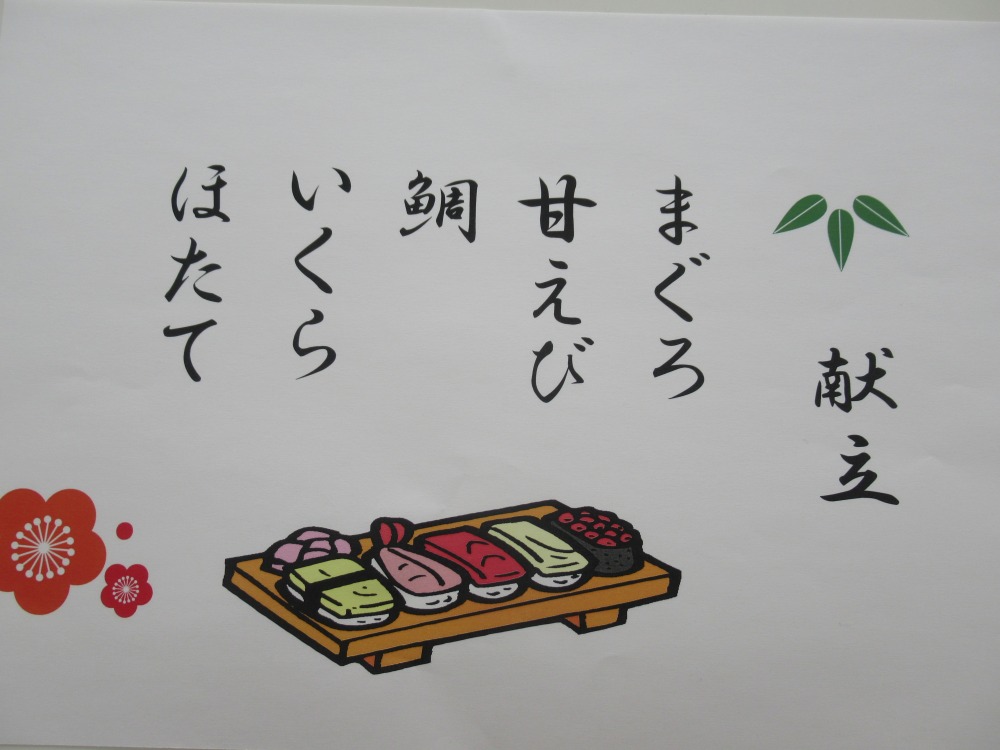 献立
まぐろ
甘えび
鯛
いくら
ほたて